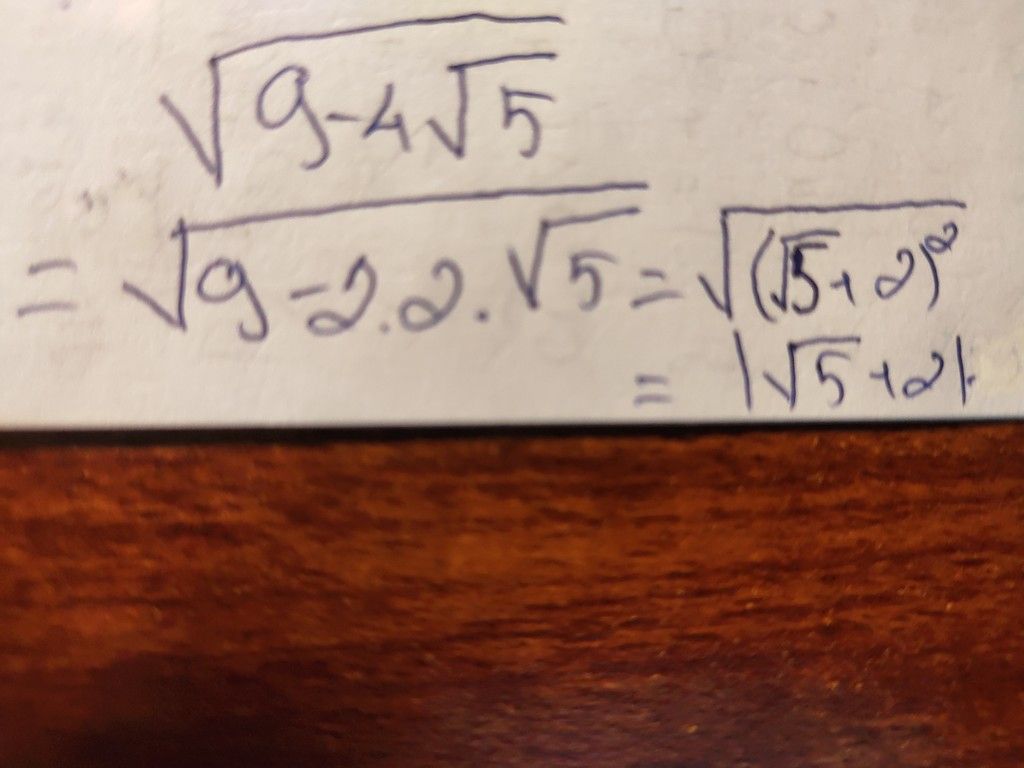 √(9-4√5)
= √(9-2.2.√5) = √((√5+2)²)
= |√5+2|.